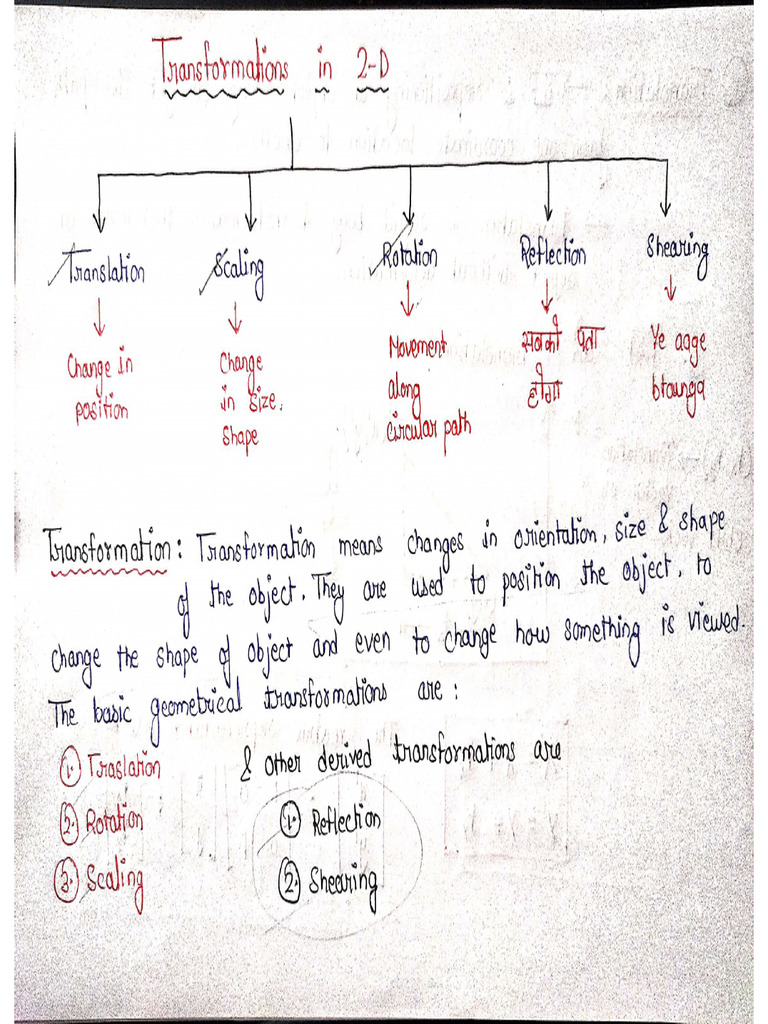 Transformations in 2-D
Translation Scaling Rotation Reflection Shearing
Change in position
Change in size, shape
Movement along circular path
सबको पता होगा
Ye aage btaunga
Transformation: Transformation means changes in orientation, size & shape
of the object. They are used to position the object, to
change the shape of object and even to change how something is viewed.
The basic geometrical transformations are:
① Traslation & other derived transformations are
② Rotation ① Reflection
③ Scaling ② Shearing